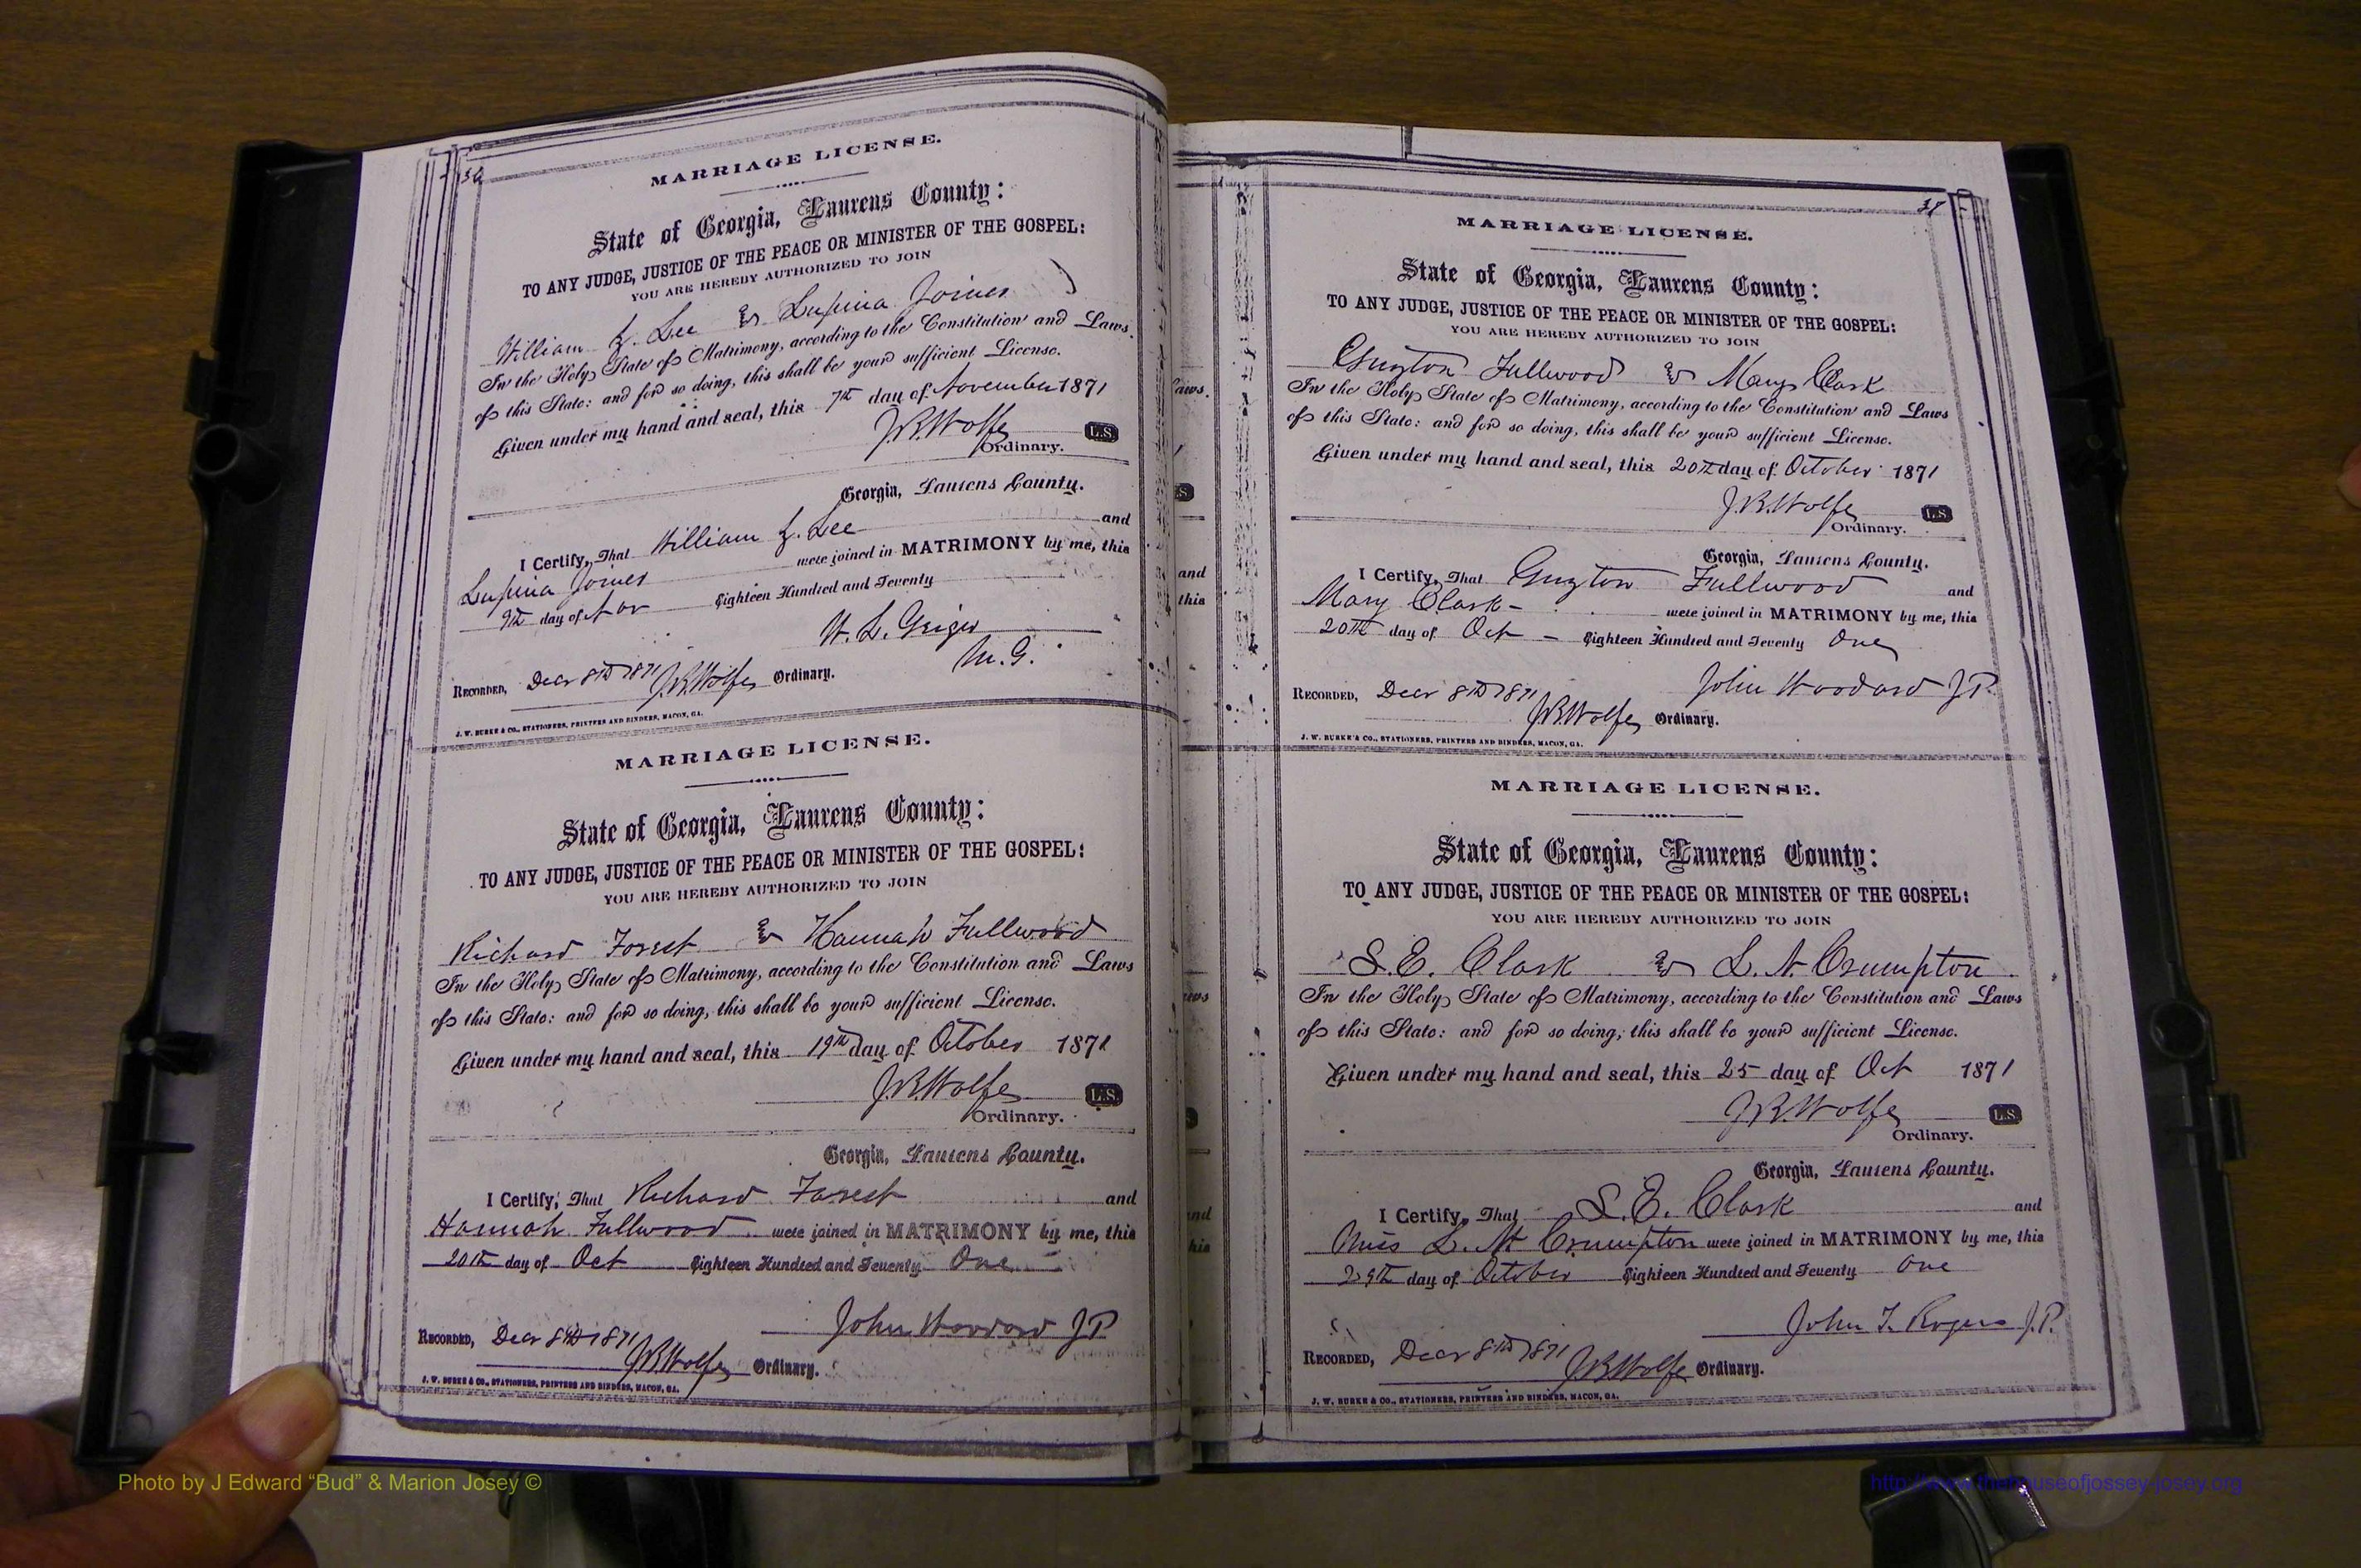 MARRIAGE LICENSE.
State of Georgia, Laurens County:
TO ANY JUDGE, JUSTICE OF THE PEACE OR MINISTER OF THE GOSPEL:
YOU ARE HEREBY AUTHORIZED TO JOIN
William Z. Lee & Joiner
In the Holy State of Matrimony, according to the Constitution and Laws
of this State: and for so doing, this shall be your sufficient License.
Given under my hand and seal, this 7th day of November 1871
J.B. Wolfe L.S.
Ordinary.
Georgia, Laurens County.
I Certify, That William Z. Lee and
Joiner were joined in MATRIMONY by me, this
9th day of Nov Eighteen Hundred and Seventy
W. L. Geiger
M.G.
RECORDED, Decr 8th 1871 J.B. Wolfe Ordinary.
J. W. BURKE & CO., STATIONERS, PRINTERS AND BINDERS, MACON, GA.
MARRIAGE LICENSE.
State of Georgia, Laurens County:
TO ANY JUDGE, JUSTICE OF THE PEACE OR MINISTER OF THE GOSPEL:
YOU ARE HEREBY AUTHORIZED TO JOIN
Richard Forest & Hannah Fullwood
In the Holy State of Matrimony, according to the Constitution and Laws
of this State: and for so doing, this shall be your sufficient License.
Given under my hand and seal, this 19th day of October 1871
J.B. Wolfe L.S.
Ordinary.
Georgia, Laurens County.
I Certify, That Richard Forest and
Hannah Fullwood were joined in MATRIMONY by me, this
20th day of Oct Eighteen Hundred and Seventy One
John Woodard JP
RECORDED, Decr 8th 1871 J.B. Wolfe Ordinary.
J. W. BURKE & CO., STATIONERS, PRINTERS AND BINDERS, MACON, GA.
31
MARRIAGE LICENSE.
State of Georgia, Laurens County:
TO ANY JUDGE, JUSTICE OF THE PEACE OR MINISTER OF THE GOSPEL:
YOU ARE HEREBY AUTHORIZED TO JOIN
Guyton Fullwood & Mary Clark
In the Holy State of Matrimony, according to the Constitution and Laws
of this State: and for so doing, this shall be your sufficient License.
Given under my hand and seal, this 20th day of October 1871
J.B. Wolfe L.S.
Ordinary.
Georgia, Laurens County.
I Certify, That Guyton Fullwood and
Mary Clark were joined in MATRIMONY by me, this
20th day of Oct Eighteen Hundred and Seventy One
John Woodard J.P.
RECORDED, Decr 8th 1871 J.B. Wolfe Ordinary.
J. W. BURKE & CO., STATIONERS, PRINTERS AND BINDERS, MACON, GA.
MARRIAGE LICENSE.
State of Georgia, Laurens County:
TO ANY JUDGE, JUSTICE OF THE PEACE OR MINISTER OF THE GOSPEL:
YOU ARE HEREBY AUTHORIZED TO JOIN
S.E. Clark & L. N. Crumpton
In the Holy State of Matrimony, according to the Constitution and Laws
of this State: and for so doing, this shall be your sufficient License.
Given under my hand and seal, this 25 day of Oct 1871
J.B. Wolfe L.S.
Ordinary.
Georgia, Laurens County.
I Certify, That S.E. Clark and
Miss L. Crumpton were joined in MATRIMONY by me, this
29th day of October Eighteen Hundred and Seventy One
John T. Rogers J.P.
RECORDED, Decr 8th 1871 J.B. Wolfe Ordinary.
J. W. BURKE & CO., STATIONERS, PRINTERS AND BINDERS, MACON, GA.
Photo by J Edward “Bud” & Marion Josey ©
http://www.thehouseofjossey-josey.org